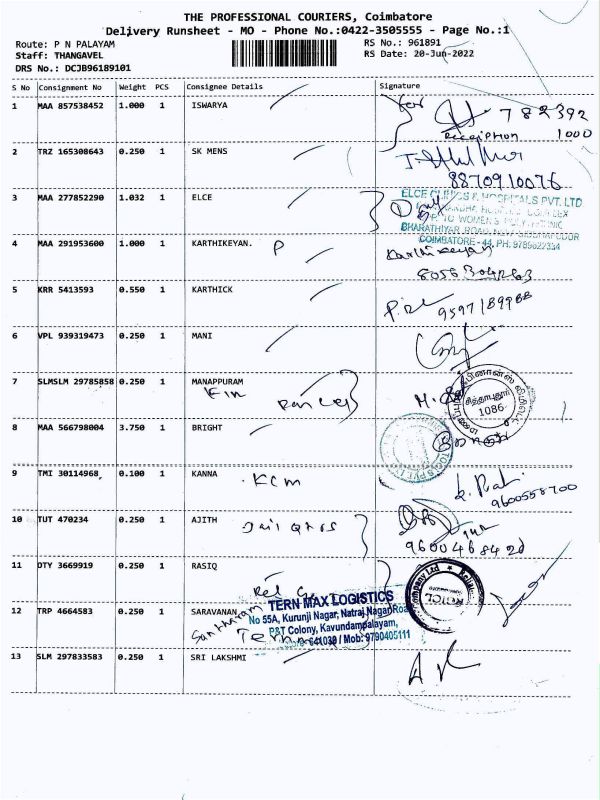 THE PROFESSIONAL COURIERS, Coimbatore
Delivery Runsheet - MO - Phone No.:0422-3505555 - Page No.:1
Route: P N PALAYAM
RS No.: 961891
Staff: THANGAVEL
RS Date: 20-Jun-2022
DRS No.: DCJB96189101
S No Consignment No Weight PCS Consignee Details Signature
1 MAA 857538452 1.000 1 ISWARYA
782392
Reception 1000
2 TRZ 165308643 0.250 1 SK MENS
8870910076
3 MAA 277852290 1.032 1 ELCE
ELCE CLINICS & HOSPITALS PVT. LTD
COIMBATORE - 44, PH: 9789622334
4 MAA 291953600 1.000 1 KARTHIKEYAN. P
Karthikeyan
5 KRR 5413593 0.550 1 KARTHICK
6 VPL 939319473 0.250 1 MANI
7 SLMSLM 29785858 0.250 1 MANAPPURAM
Fin
சித்தாபுதூர்
1086
8 MAA 566798004 3.750 1 BRIGHT
9 TMI 30114968 0.100 1 KANNA
KCM
9600558700
10 TUT 470234 0.250 1 AJITH
11 OTY 3669919 0.250 1 RASIQ
Rel
12 TRP 4664583 0.250 1 SARAVANAN
TERN MAX LOGISTICS
No 55A, Kurunji Nagar, Natraj Nagar Road
P&T Colony, Kavundampalayam,
641030 / Mob: 9790405111
13 SLM 297833583 0.250 1 SRI LAKSHMI